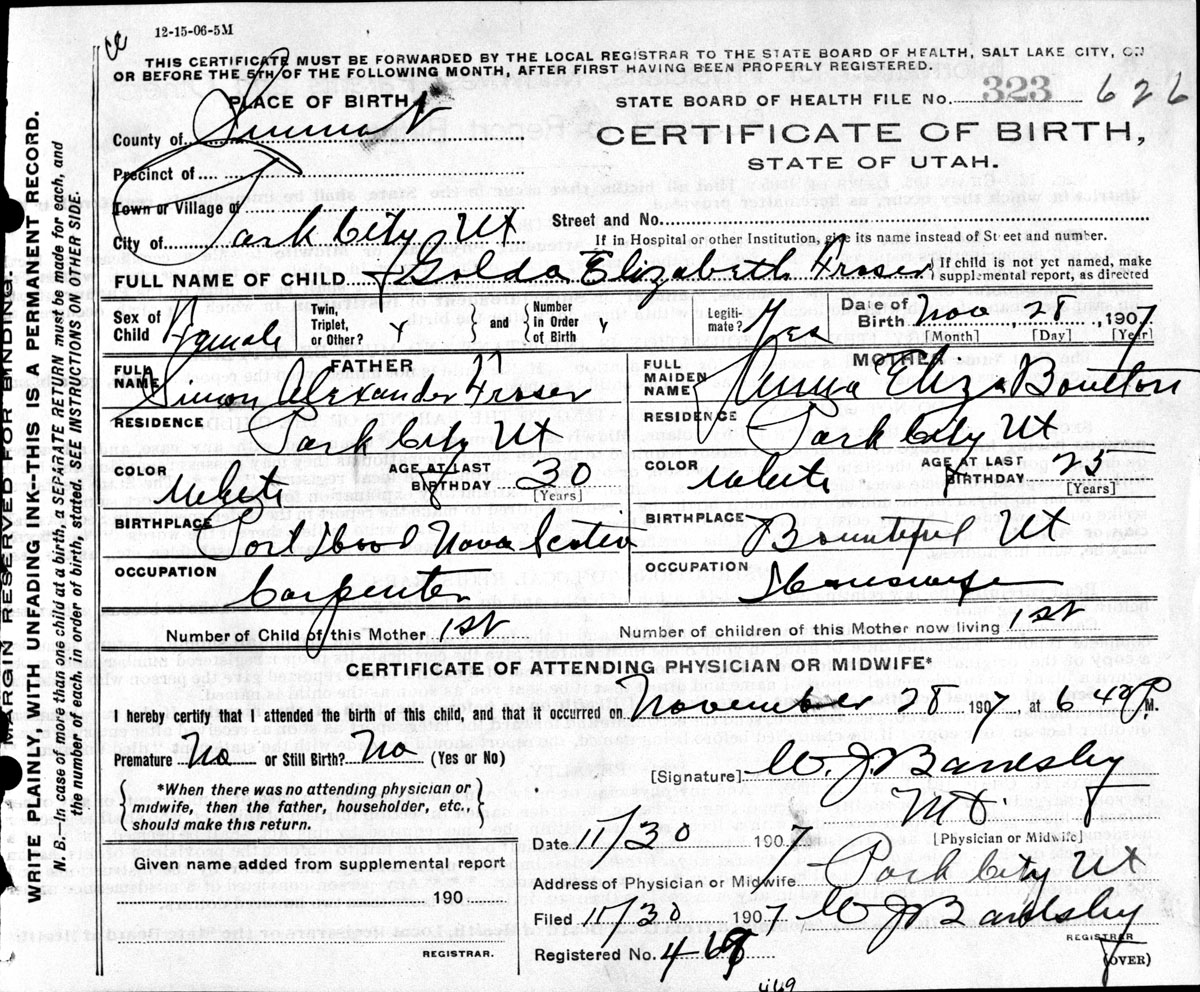 12-15-06-5M
THIS CERTIFICATE MUST BE FORWARDED BY THE LOCAL REGISTRAR TO THE STATE BOARD OF HEALTH, SALT LAKE CITY, ON
OR BEFORE THE 5TH OF THE FOLLOWING MONTH, AFTER FIRST HAVING BEEN PROPERLY REGISTERED.
PLACE OF BIRTH
STATE BOARD OF HEALTH FILE No. 323 626
County of Summit
CERTIFICATE OF BIRTH,
STATE OF UTAH.
Precinct of
Town or Village of
Street and No.
City of Park City Ut
If in Hospital or other Institution, give its name instead of Street and number.
FULL NAME OF CHILD Golda Elizabeth Fraser { If child is not yet named, make supplemental report, as directed
Sex of Child Female Twin, Triplet, or Other? } and { Number in Order of Birth Legitimate? Yes Date of Birth Nov 28 1907
[Month] [Day] [Year]
FATHER
FULL NAME Simon Alexander Fraser
RESIDENCE Park City Ut
COLOR White AGE AT LAST BIRTHDAY 30 [Years]
BIRTHPLACE Port Hood Nova Scotia
OCCUPATION Carpenter
MOTHER
FULL MAIDEN NAME Emma Eliza Boulton
RESIDENCE Park City Ut
COLOR White AGE AT LAST BIRTHDAY 25 [Years]
BIRTHPLACE Bountiful Ut
OCCUPATION Housewife
Number of Child of this Mother 1st Number of children of this Mother now living 1st
CERTIFICATE OF ATTENDING PHYSICIAN OR MIDWIFE*
I hereby certify that I attended the birth of this child, and that it occurred on November 28 1907 at 640 P M.
Premature No or Still Birth? No (Yes or No)
[Signature] W. J Bardsley
MD
[Physician or Midwife]
*When there was no attending physician or
midwife, then the father, householder, etc.,
should make this return.
Date 11/30 1907
Given name added from supplemental report
190
REGISTRAR.
Address of Physician or Midwife Park City Ut
Filed 11/30 1907 W J Bardsley
REGISTRAR
Registered No. 469
(OVER)
469
MARGIN RESERVED FOR BINDING.
WRITE PLAINLY, WITH UNFADING INK--THIS IS A PERMANENT RECORD.
N. B.—In case of more than one child at a birth, a SEPARATE RETURN must be made for each, and
the number of each, in order of birth, stated. SEE INSTRUCTIONS ON OTHER SIDE.